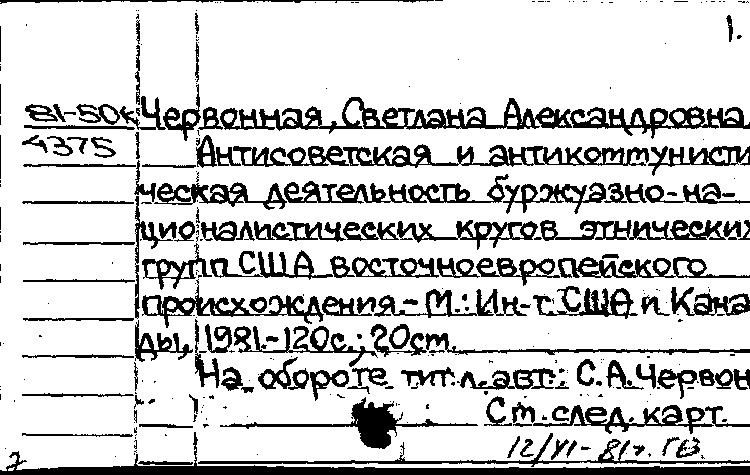 1.
81-50к Червонная, Светлана Александровна.
4375 Антисоветская и антикоммунисти
ческая деятельность буржуазно-на-
ционалистических кругов этнических
групп США восточноевропейского
происхождения.- М.: Ин-т США и Кана
ды, 1981.-120с.; 20см.
На обороте тит.л. авт.: С.А. Червон
См. след. карт.
12/VI-81г. ГВ.
7